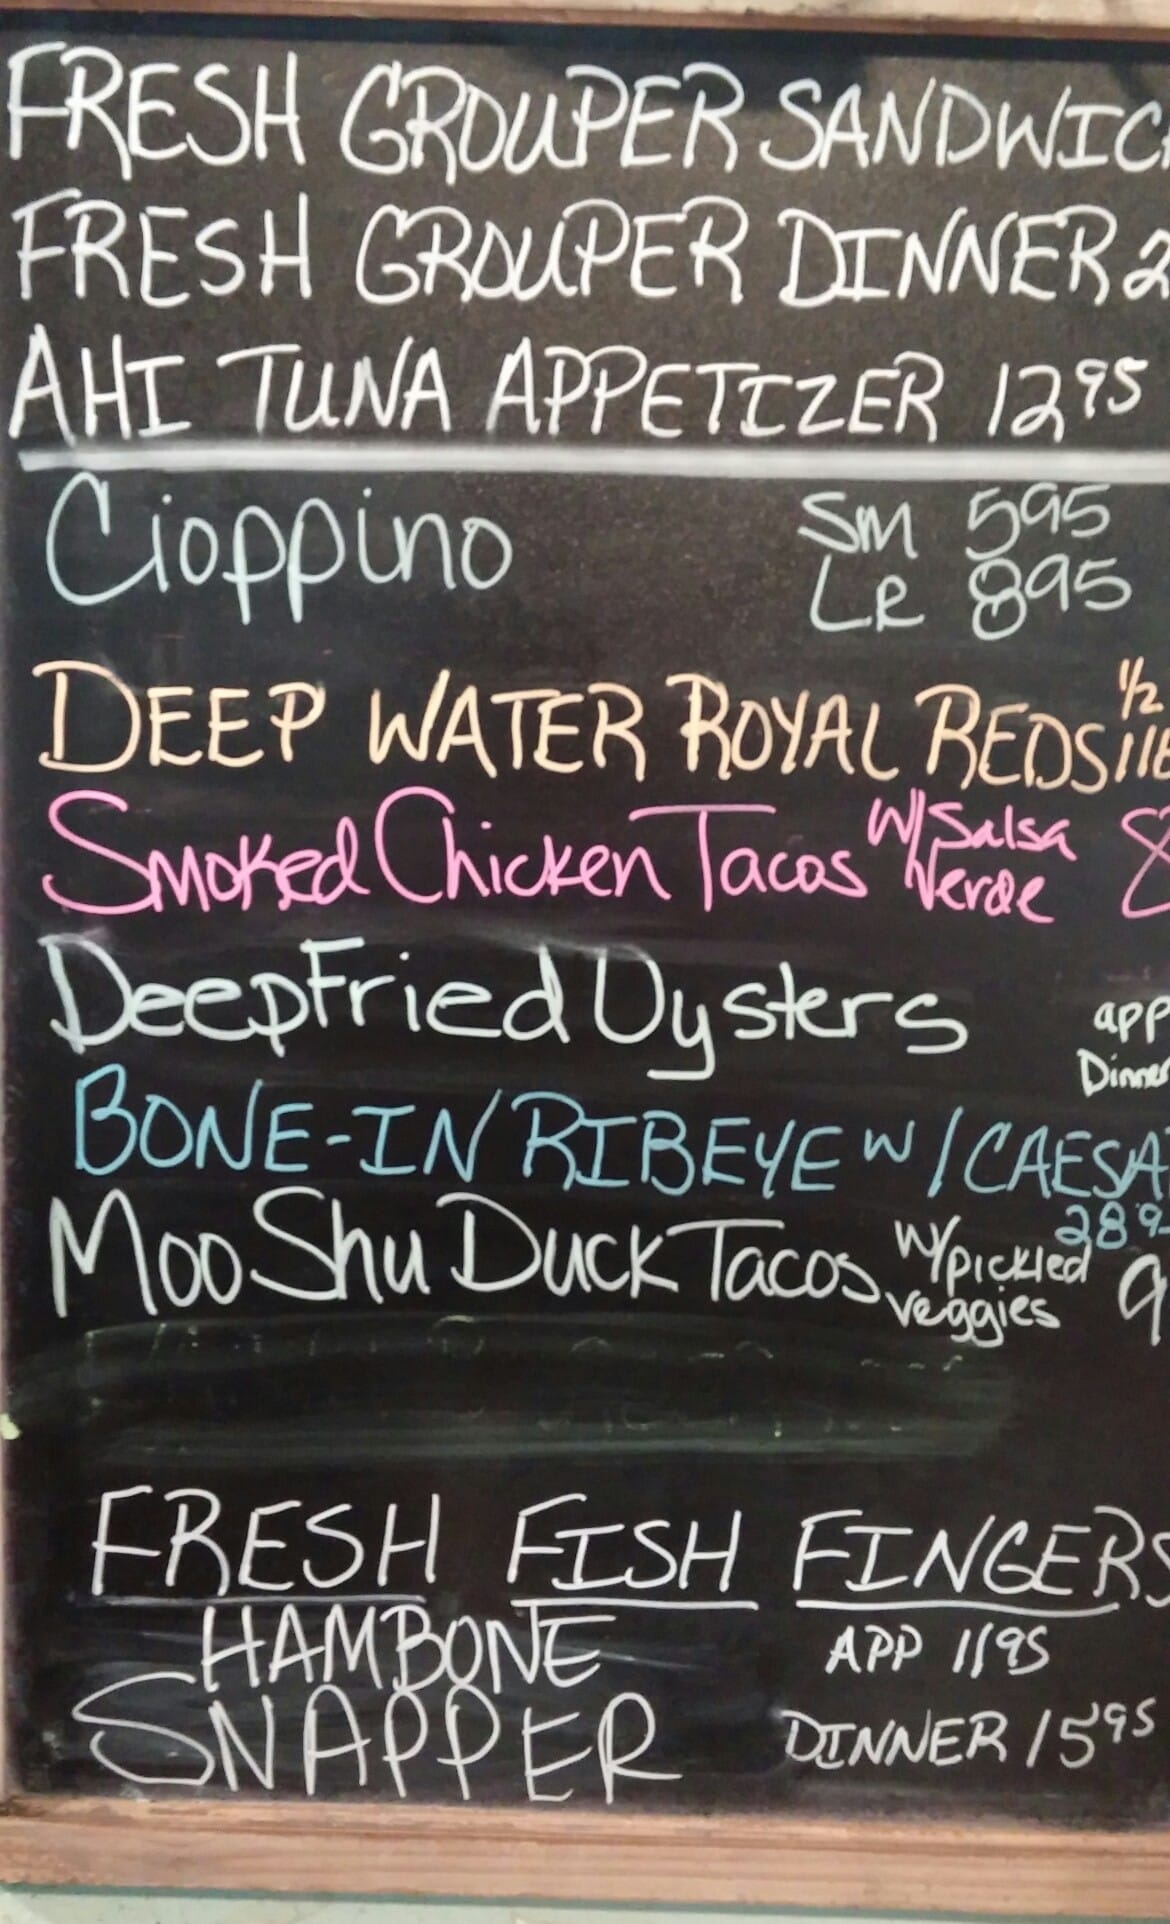 FRESH GROUPER SANDWIC
FRESH GROUPER DINNER 2
AHI TUNA APPETIZER 12 95
Cioppino SM 595
LR 895
DEEP WATER ROYAL REDS 1/2
1 LB
Smoked Chicken Tacos w/ Salsa Verde 8
Deep Fried Oysters app
Dinner
BONE-IN RIBEYE W/CAESA
28 9
Moo Shu Duck Tacos w/pickled veggies 9
FRESH FISH FINGERS
HAMBONE APP 11 95
SNAPPER DINNER 15 95